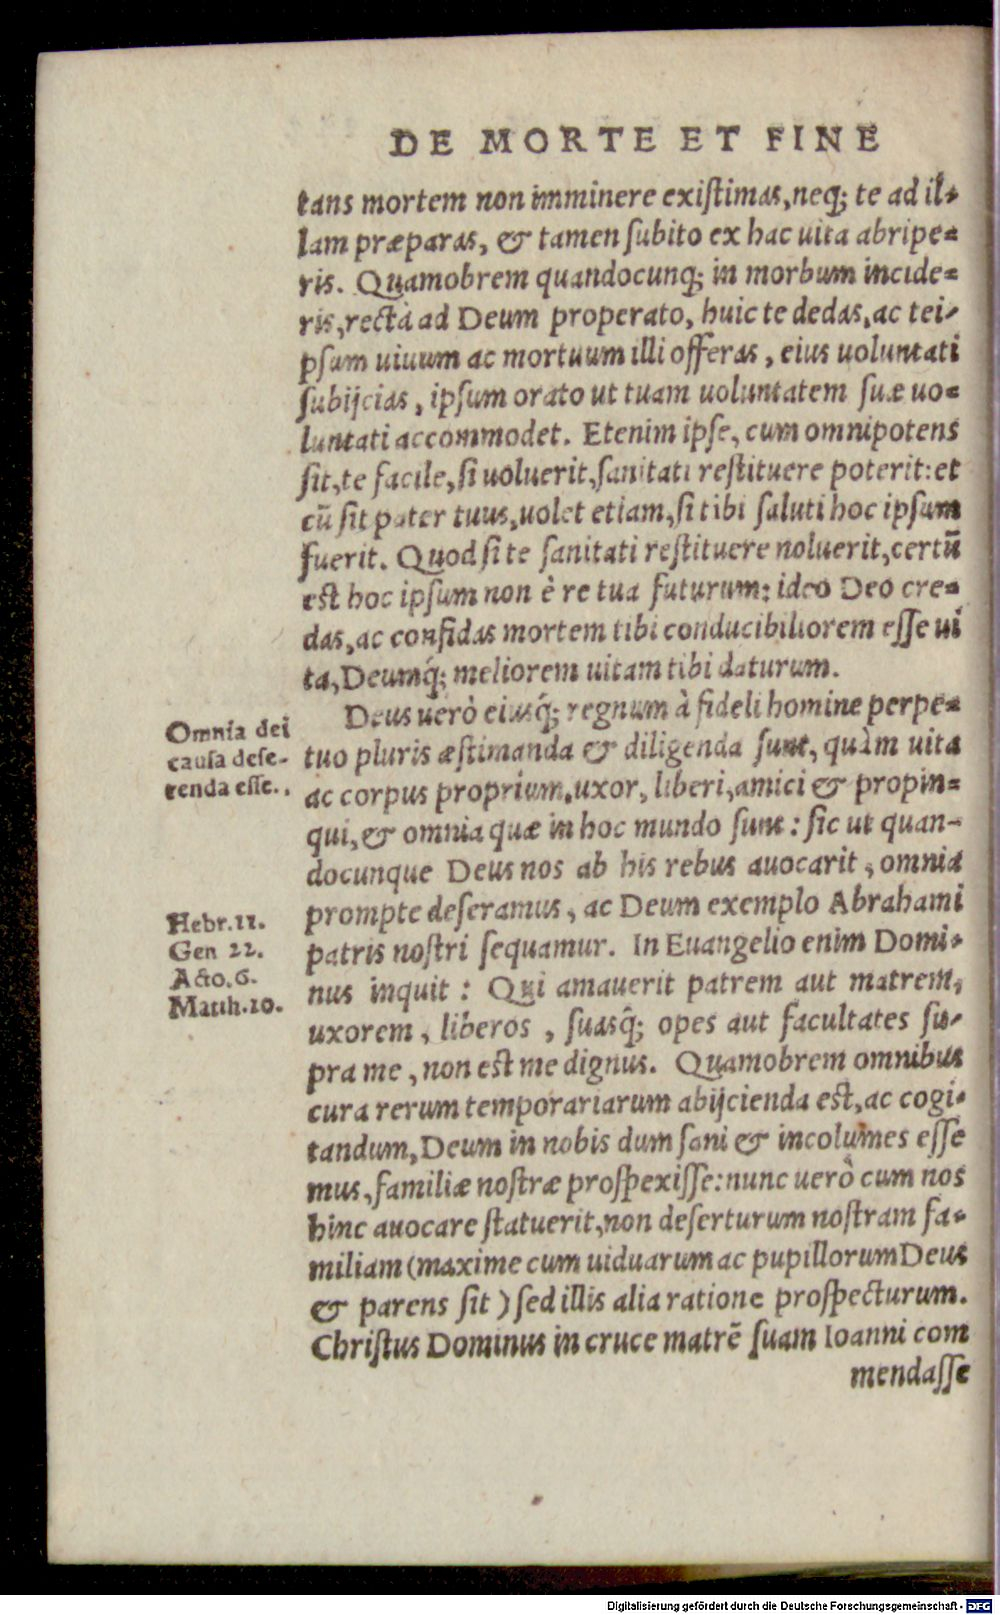 DE MORTE ET FINE
tans mortem non imminere existimas, neq; te ad il-
lam præparas, & tamen subito ex hac uita abripe-
ris. Quamobrem quandocunq; in morbum incide-
ris, rectà ad Deum properato, huic te dedas, ac tei-
psum uiuum ac mortuum illi offeras, eius uoluntati
subijcias, ipsum orato ut tuam uoluntatem suæ uo-
luntati accommodet. Etenim ipse, cum omnipotens
sit, te facile, si uoluerit, sanitati restituere poterit: et
cū sit pater tuus, uolet etiam, si tibi saluti hoc ipsum
fuerit. Quod si te sanitati restituere noluerit, certū
est hoc ipsum non è re tua futurum: ideo Deo cre-
das, ac confidas mortem tibi conducibiliorem esse ui
ta, Deumq́; meliorem uitam tibi daturum.
Deus uerò eiusq́; regnum à fideli homine perpe-
tuo pluris æstimanda & diligenda sunt, quàm uita
ac corpus proprium, uxor, liberi, amici & propin-
qui, & omnia quæ in hoc mundo sunt: sic ut quan-
docunque Deus nos ab his rebus auocarit, omnia
prompte deseramus, ac Deum exemplo Abrahami
patris nostri sequamur. In Euangelio enim Domi-
nus inquit: Qui amauerit patrem aut matrem,
uxorem, liberos, suasq́; opes aut facultates su-
pra me, non est me dignus. Quamobrem omnibus
cura rerum temporariarum abijcienda est, ac cogi-
tandum, Deum in nobis dum sani & incolumes esse
mus, familiæ nostræ prospexisse: nunc uerò cum nos
hinc auocare statuerit, non deserturum nostram fa-
miliam (maxime cum uiduarum ac pupillorum Deus
& parens sit) sed illis alia ratione prospecturum.
Christus Dominus in cruce matrē suam Ioanni com
mendasse
Omnia dei
causa dese-
renda esse.
Hebr. 11.
Gen 22.
Acto. 6.
Matth. 10.
Digitalisierung gefördert durch die Deutsche Forschungsgemeinschaft - DFG